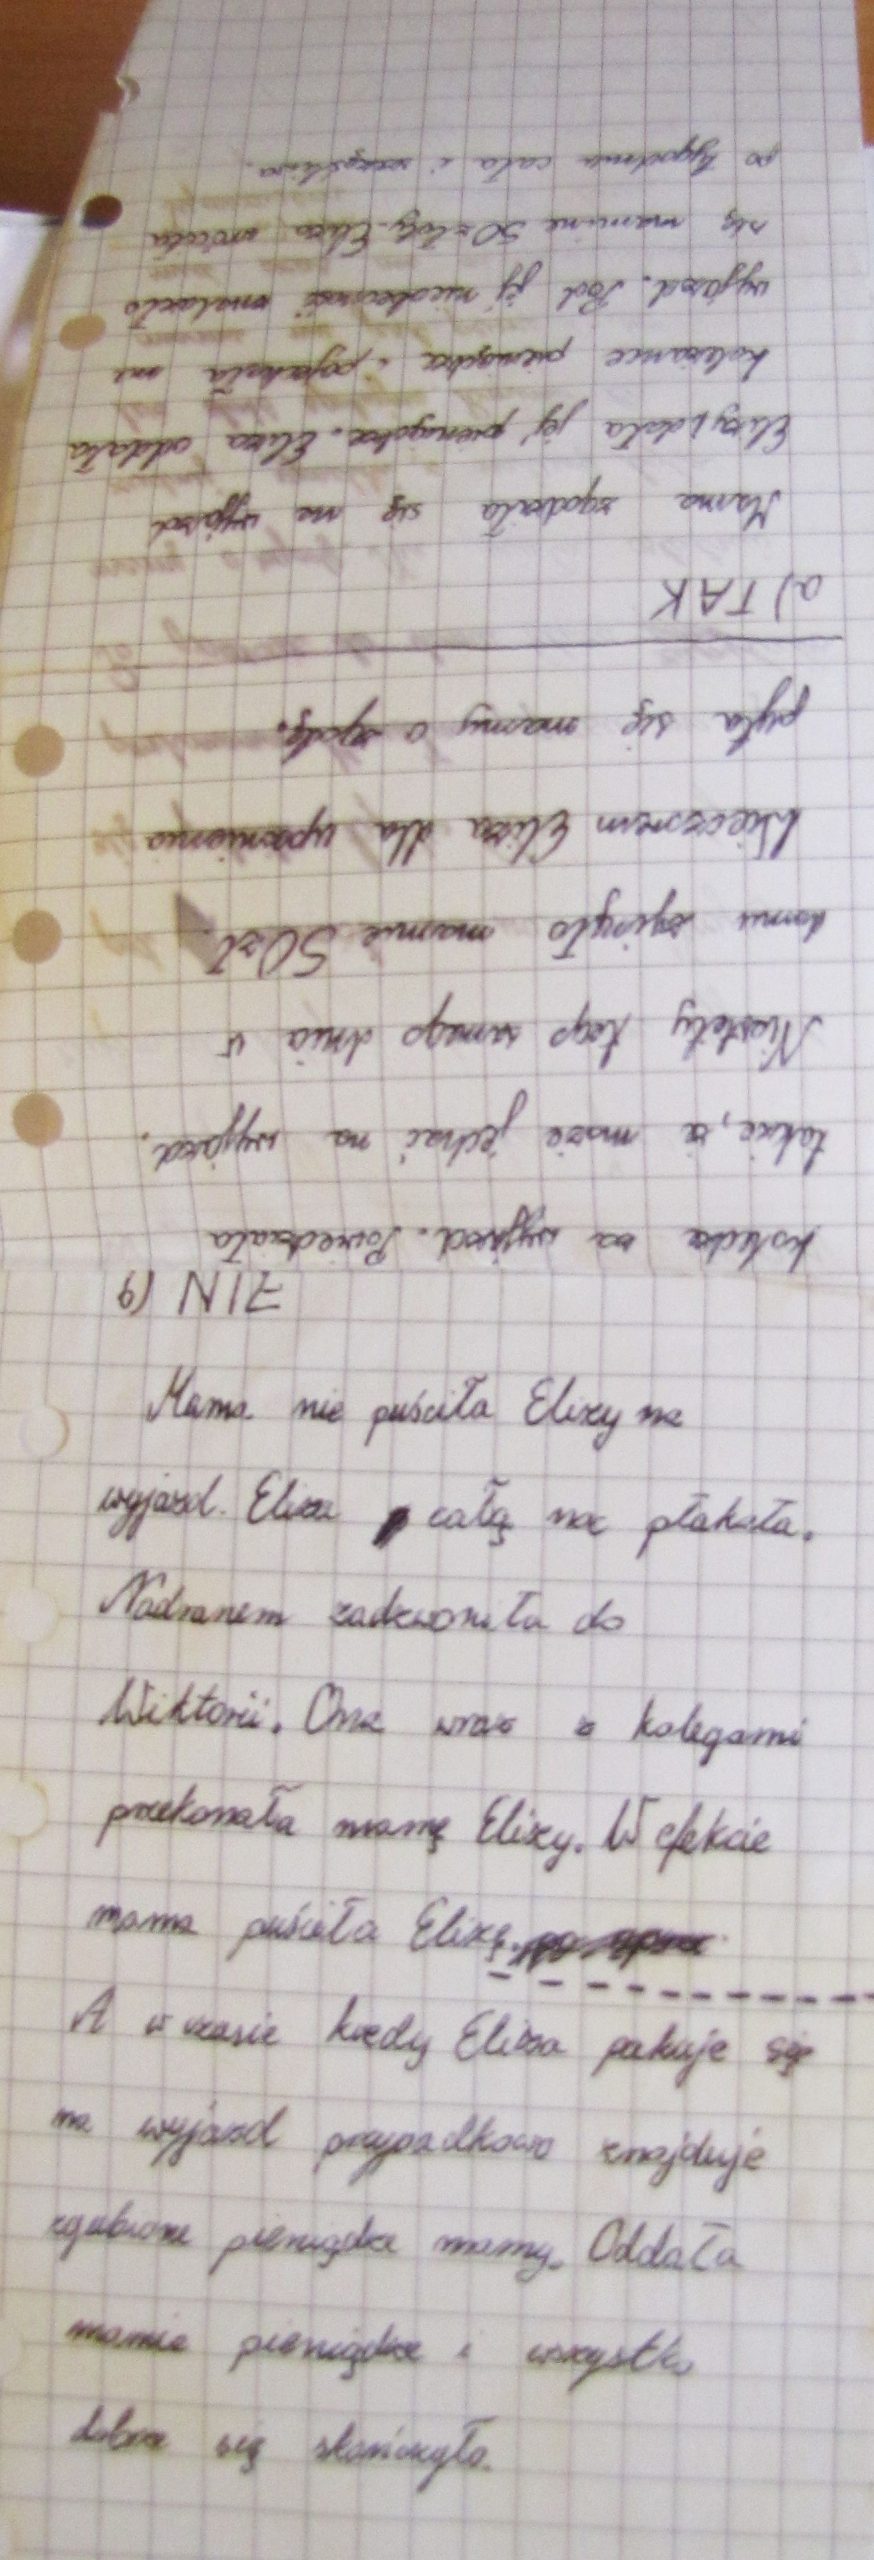 za wyjazd. Powiedziała
także, iż może jechać na wyjazd.
Niestety tego samego dnia w
domu zginęło mamie 50 zł.
Wieczorem Eliza dla upewnienia
pyta się mamy o zgodę.
a) TAK
Mama zgodziła się na wyjazd
Elizy i dała jej pieniądze. Eliza oddała
koleżance pieniądze i pojechała na
wyjazd. Pod jej nieobecność znalazło
się mamine 50 złoty. Eliza wróciła
po tygodniu cała i szczęśliwa.
b) NIE
Mama nie puściła Elizy na
wyjazd. Eliza całą noc płakała.
Nadranem zadzwoniła do
Wiktorii. Ona wraz z kolegami
przekonała mamę Elizy. W efekcie
mama puściła Elizę.
A w czasie kiedy Eliza pakuje się
na wyjazd przypadkowo znajduje
zgubione pieniądze mamy. Oddała
mamie pieniądze i wszystko
dobrze się skończyło.